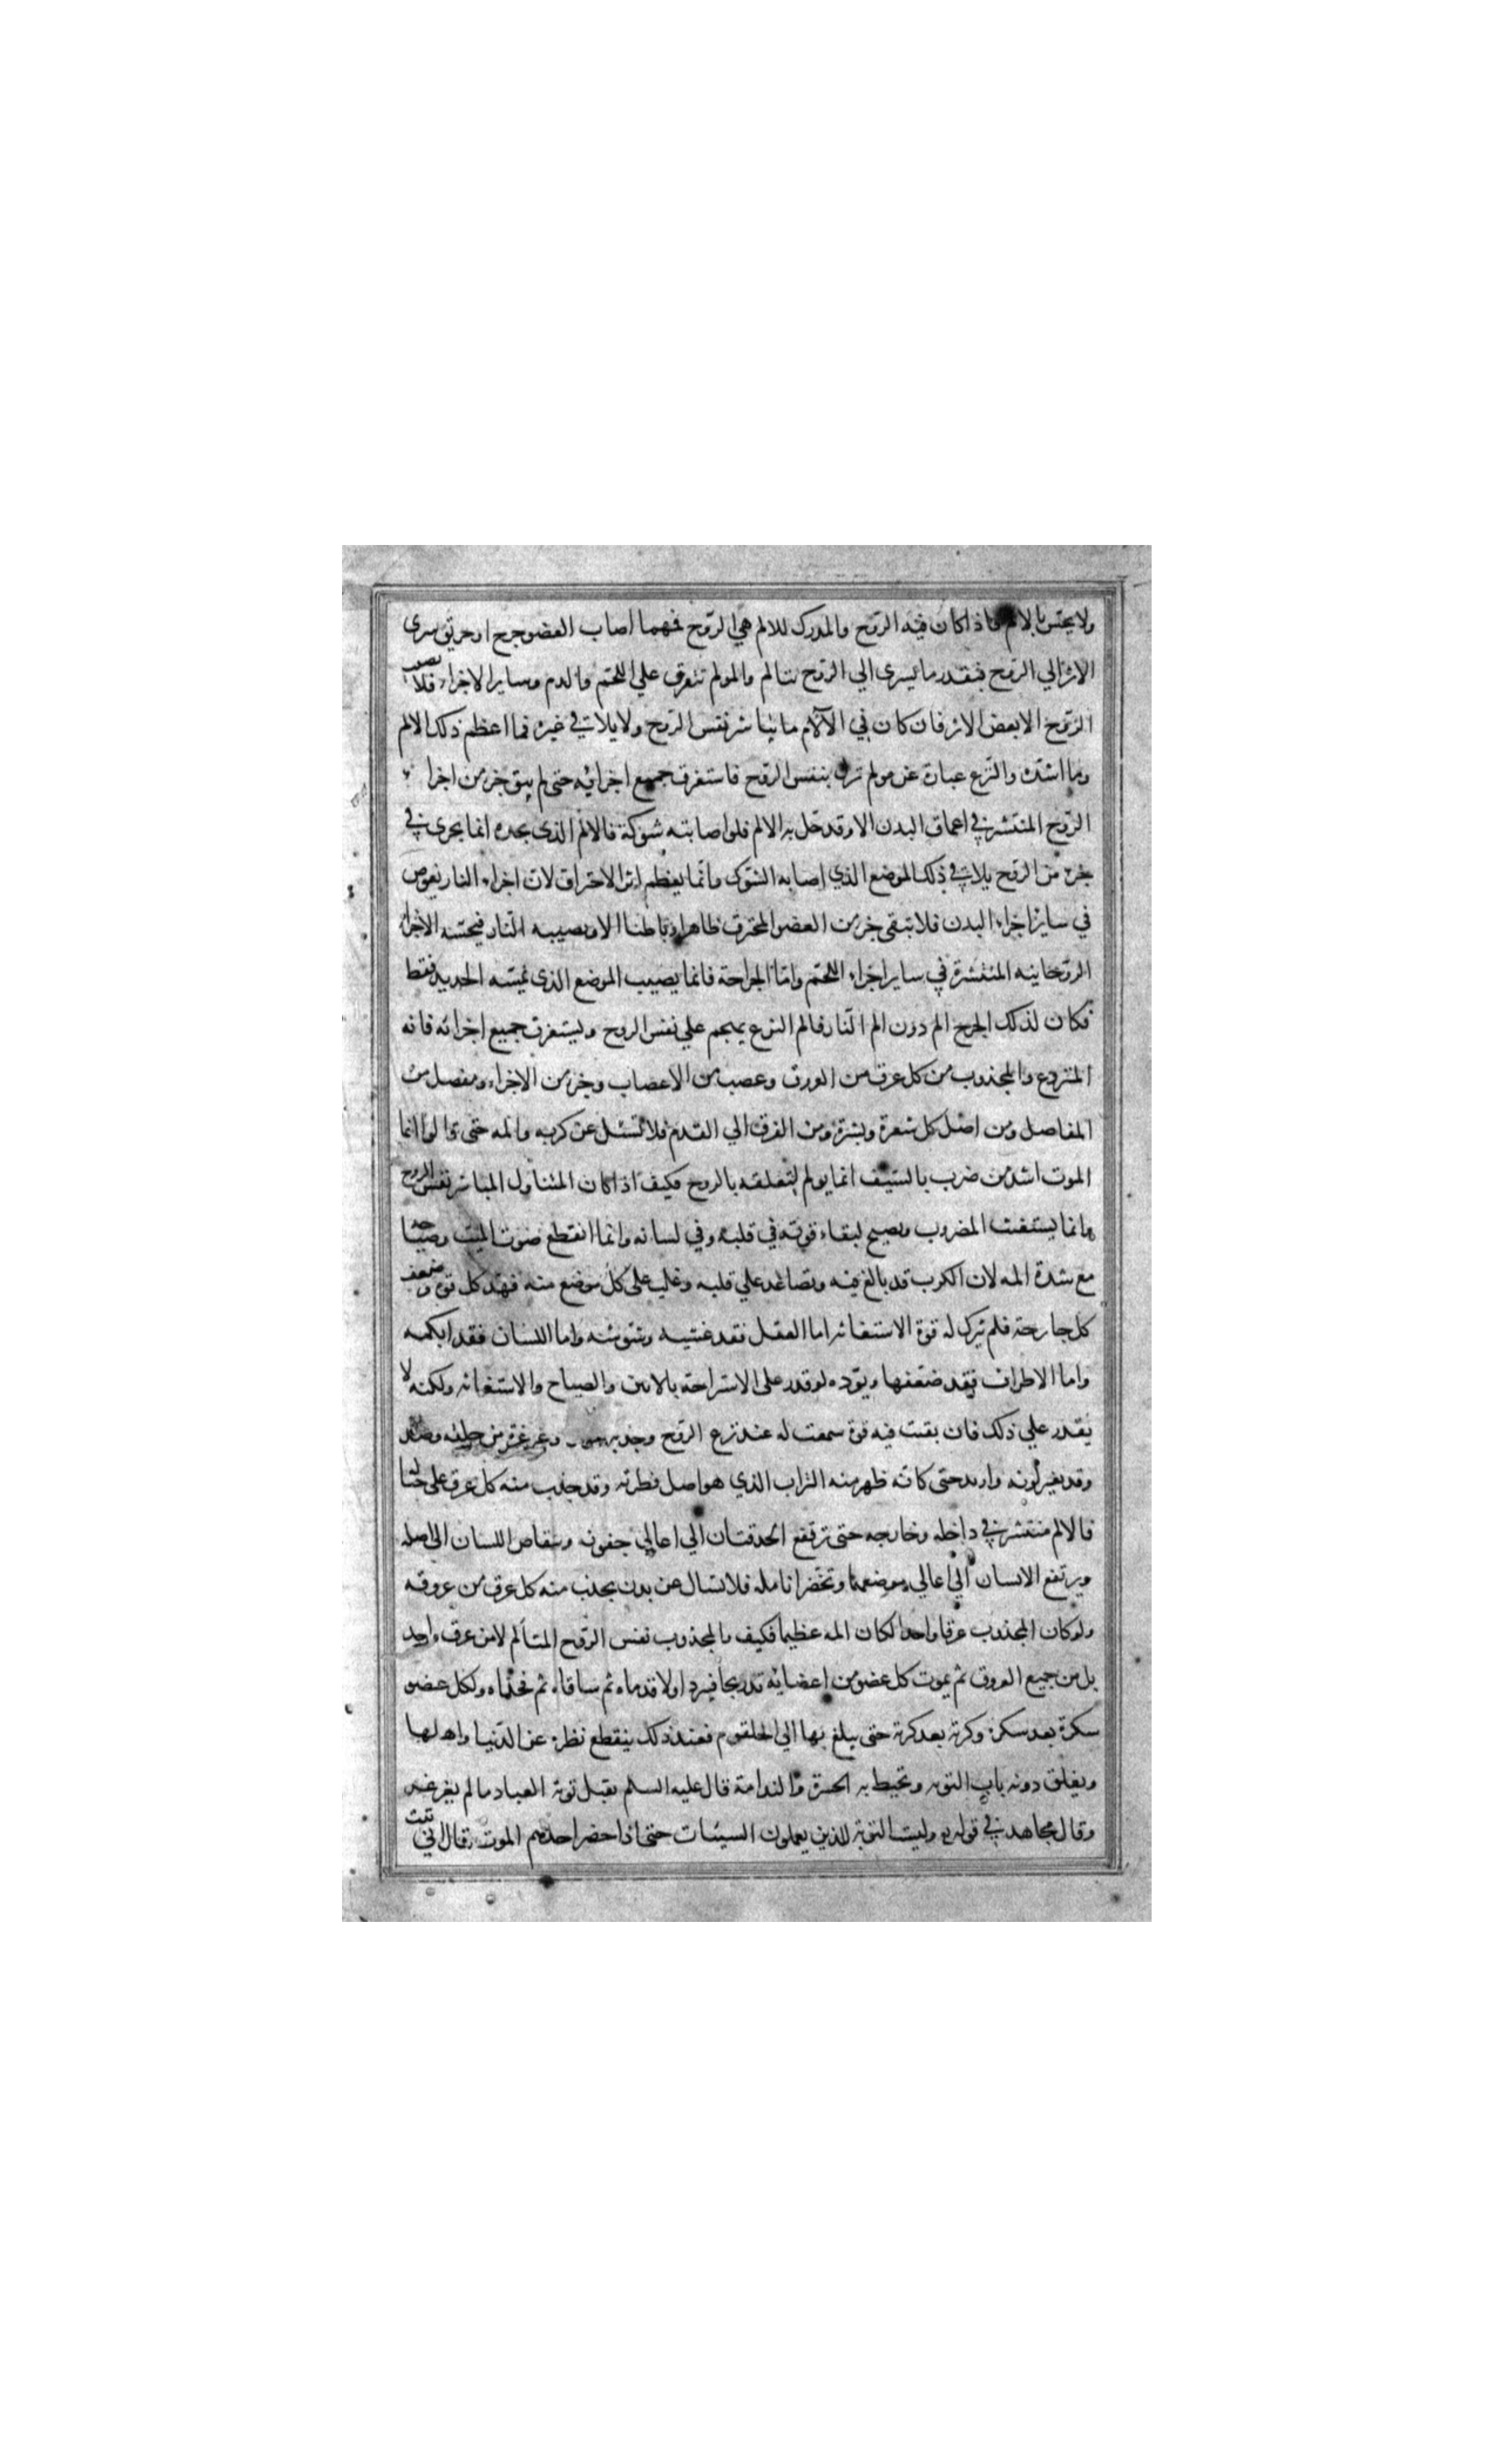 ولا يحس بالالم فاذا كان فيه الروح والمدرك للالم هي الروح فمهما اصاب العضو جرح او حريق سرى
الاثر الي الروح فبقدر ما يسري الي الروح يتالم والمولم تتفرق علي اللحم والدم وساير الاجزاء فلا يصيب
الروح الا بعض الاثر فان كان في الآلام ما يباشر نفس الروح ولا يلاقي غيره فما اعظم ذلك الالم
وما اشده والنزع عبارة عن مولم نزل بنفس الروح فاستغرق جميع اجزائه حتى لم يبق جزء من اجزاء
الروح المنتشر في اعماق البدن الا وقد حل به الالم فلو اصابته شوكة فالالم الذي يجده انما يجري في
جزء من الروح يلاقي ذلك الموضع الذي اصابه الشوك وانما يعظم اثر الاحتراق لان اجزاء النار يغوص
في ساير اجزاء البدن فلا تبقى جزء من العضو المحترق ظاهرا وباطنا الا ويصيبه النار فيحسه الاجزاء
الروحانيه المنتشرة في ساير اجزاء اللحم واما الجراحة فانما يصيب الموضع الذي يمسه الحديد فقط
فكان لذلك الجرح الم دون الم النار فالم النزع يهجم علي نفس الروح ويستغرق جميع اجزائه فانه
المنزوع والمجذوب من كل عرق من العروق وعصب من الاعصاب وجزء من الاجزاء ومفصل من
المفاصل ومن اصل كل شعرة وبشرة ومن الفرق الي القدم فلا تسئل عن كربه والمه حتى قالوا انما
الموت اشد من ضرب بالسيف انما يولم لتعلقه بالروح فكيف اذا كان المتناول المباشر نفس الروح
وانما يستغيث المضروب ويصيح لبقاء قوته في قلبه وفي لسانه وانما انقطع صوت الميت وصياحه
مع شدة المه لان الكرب قد بالغ فيه وتصاعد علي قلبه وغلب على كل موضع منه فهد كل قوة وضعف
كل جارحة فلم يترك له قوة الاستغاثه اما العقل فقد غشيه وشوشه واما اللسان فقد ابكمه
واما الاطراف فقد ضعفها ويود لو قدر على الاستراحة بالانين والصياح والاستغاثه ولكنه لا
يقدر علي ذلك فان بقيت فيه قوة سمعت له عند نزع الروح وجذبه وغرغرة من حلقه وصدره
وقد تغير لونه واربد حتى كانه ظهر منه التراب الذي هو اصل فطرته وقد جذب منه كل عرق على حياله
فالالم منتشر في داخله وخارجه حتى ترتفع الحدقتان الي اعالي جفونه ويتقلص اللسان الى اصله
ويرتفع الانسان الي اعالي موضعهما وتخضر انامله فلا تسال عن بدن يجذب منه كل عرق من عروقه
ولو كان المجذوب عرقا واحدا لكان المه عظيما فكيف بالمجذوب نفس الروح المتالم لا من عرق واحد
بل من جميع العروق ثم يموت كل عضو من اعضائه تدريجا فيبرد اولا قدماه ثم ساقاه ثم فخذاه ولكل عضو
سكرة بعد سكرة وكربه بعد كربه حتى يبلغ بها الي الحلقوم فعند ذلك ينقطع نظره عن الدنيا واهلها
ويغلق دونه باب التوبه وتحيط به الحسرة والندامة قال عليه السلم يقبل توبة العباد ما لم يغرغر
وقال مجاهد في قوله وليست التوبة للذين يعملون السيئات حتى اذا حضر احدهم الموت قال اني تبت